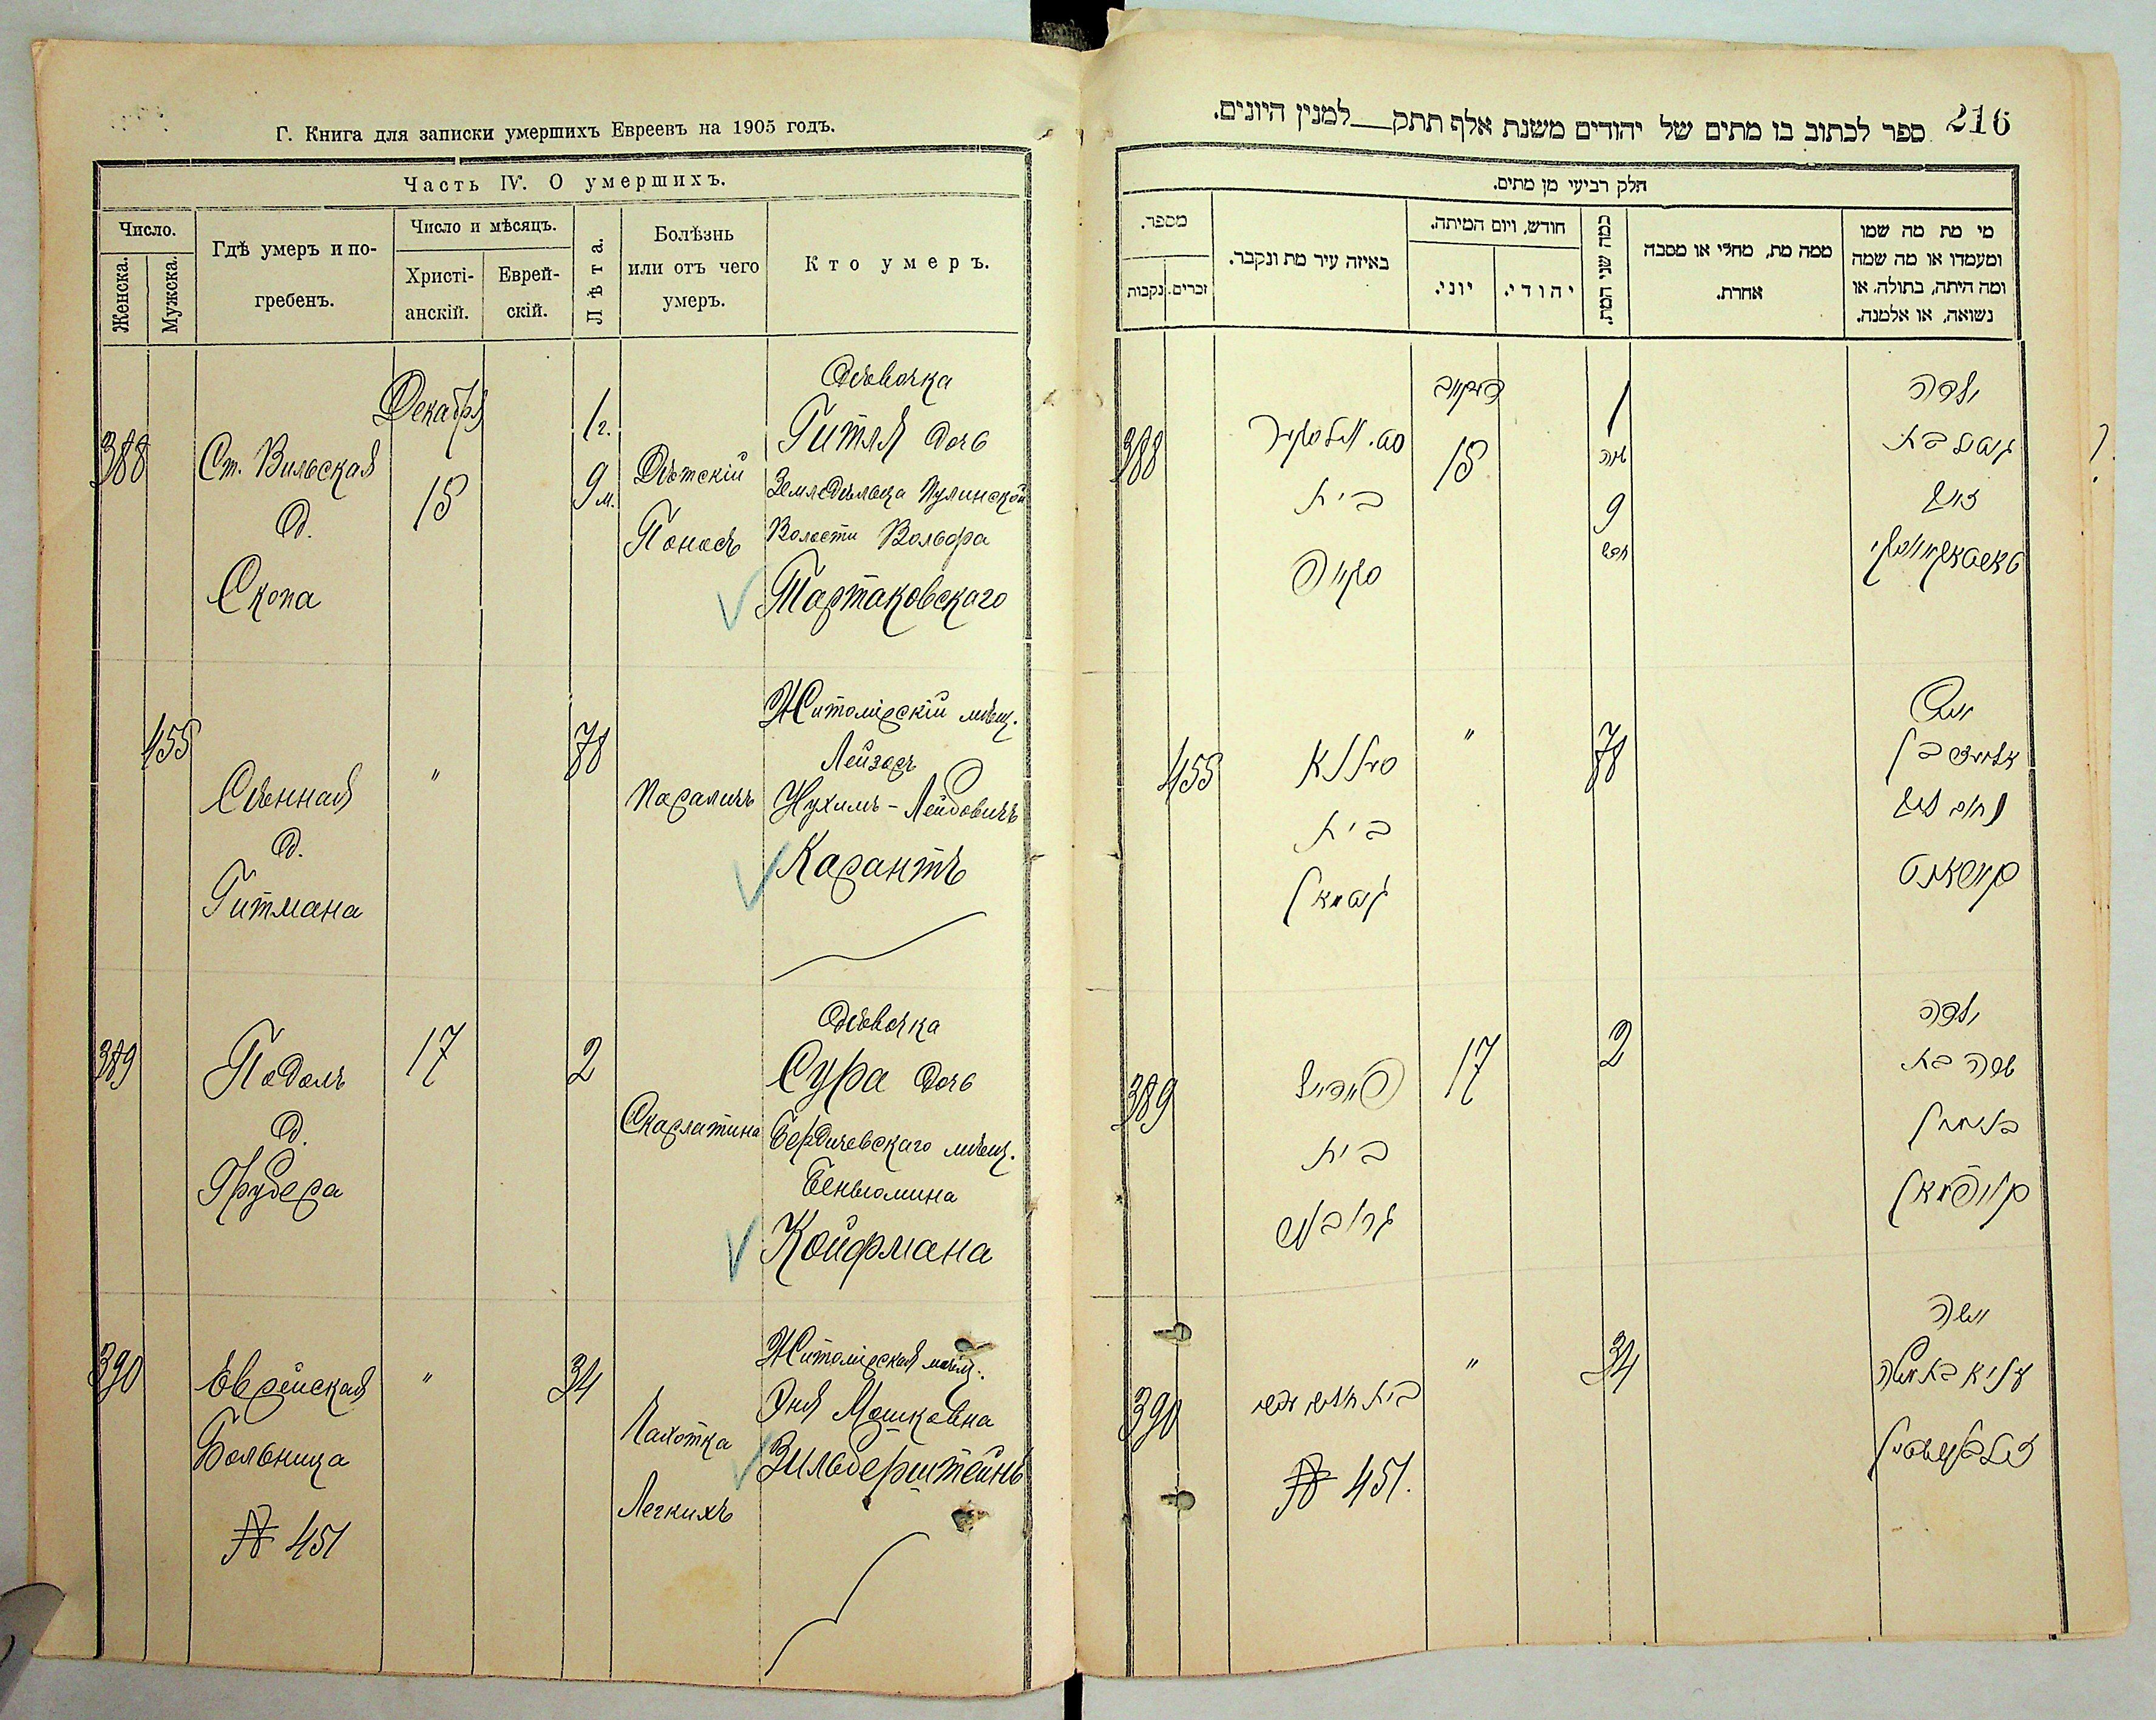 Г. Книга для записки умершихъ Евреевъ на 1905 годъ.
Часть IV. О умершихъ.
Число.
Женска.
Мужска.
Гдѣ умеръ и по-
гребенъ.
Число и мѣсяцъ.
Христі-
анскій.
Еврей-
скій.
Лѣта.
Болѣзнь
или отъ чего
умеръ.
Кто умеръ.
388
Ст. Вильская
д.
Скопа
Декабря
15
1 г.
9 м.
Дѣтскій
Поносъ
Дѣвочка
Гитля дочь
Земледѣльца Пулинской
Волости Вольфа
Тартаковскаго
455
Сѣнная
д.
Гитмана
"
78
Параличъ
Житомірскій мѣщ.
Лейзоръ
Нухимъ-Лейбовичъ
Карантъ
389
Подолъ
д.
Грубера
17
2
Скарлатина
Дѣвочка
Сура дочь
Бердичевскаго мѣщ.
Беньюмина
Койфмана
390
Еврейская
Больница
№ 451
"
34
Чахотка
Легкихъ
Житомірская мѣщ.
Эня Мошковна
Зильберштейнъ
216
ספר לכתוב בו מתים של יהודים משנת אלף תתק__למנין היונים.
חלק רביעי מן מתים.
מי מת מה שמו
ומעמדו או מה שמה
ומה היתה, בתולה, או
נשואה, או אלמנה.
ממה מת, מחלי או מסבה
אחרת.
כמה שני המת.
חודש, ויום המיתה.
יהודי.
יוני.
באיזה עיר מת ונקבר.
מספר.
זכרים.
נקבות
ילדה
גיטל בת
וואלף
טארטאקאווסקי
1
שנה
9
חדש
דיקאבר
15
בית
סקופא
388
אליעזר בן
נחום לייב
קאראנט
78
"
סעננא
בית
גיטמאן
455
ילדה
שרה בת
בנימין
קויפמאן
2
17
פאדאל
בית
גרובער
389
אשה
זילבערשטיין
34
"
№ 451.
390